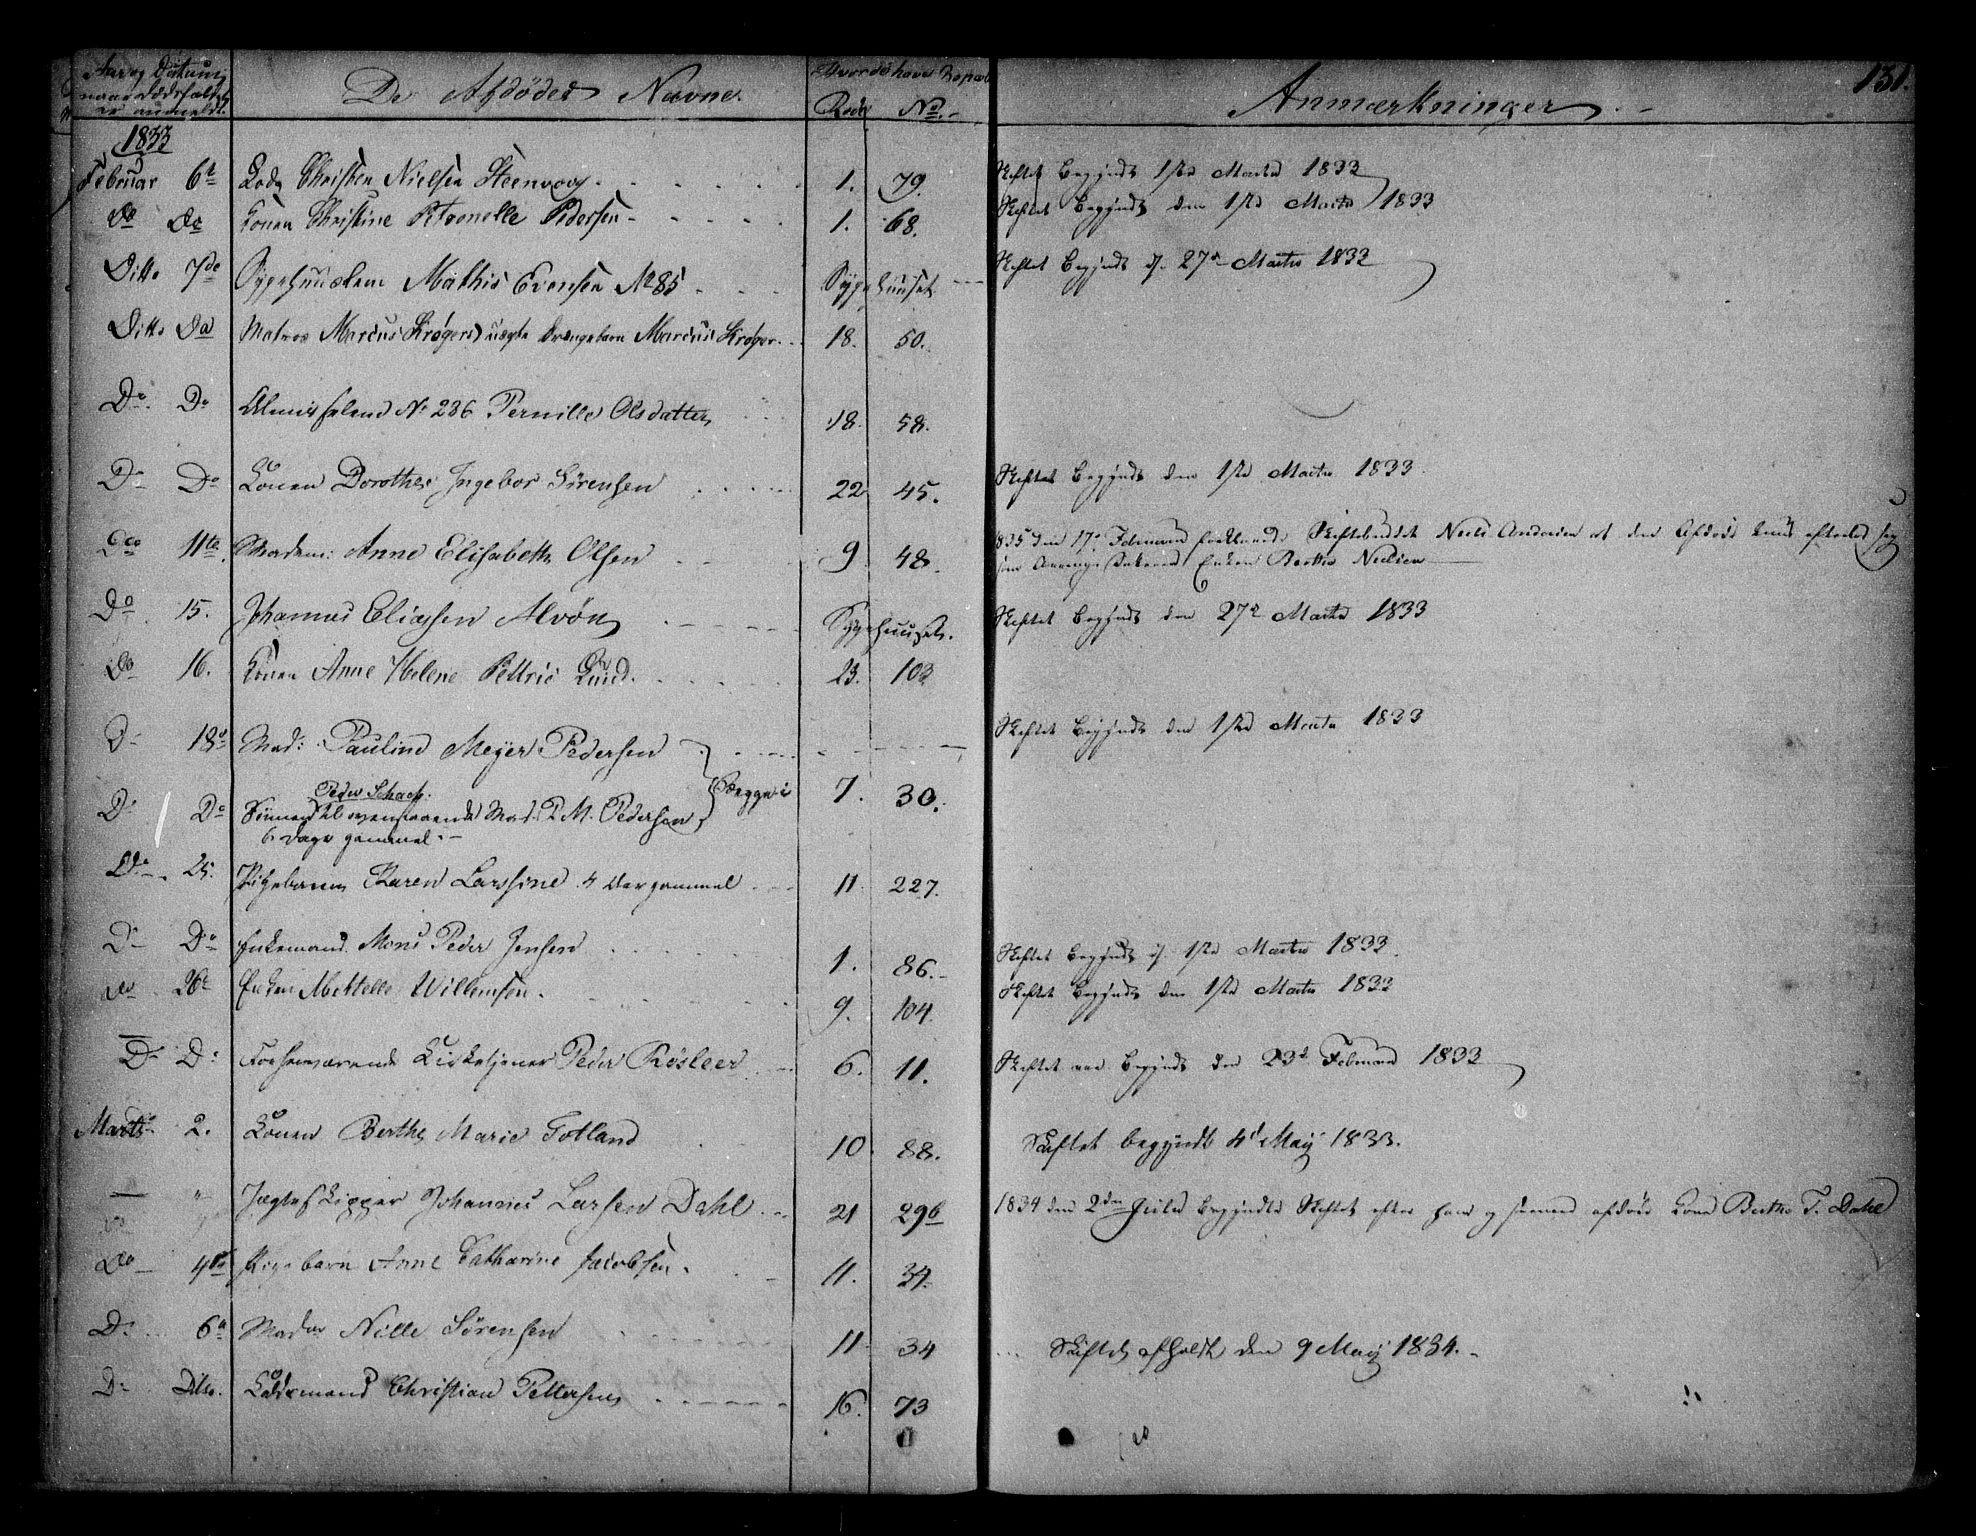 131.
Aar og Datum naar Dødsfaldet er anmeldt.
De Afdødes Navne
Hvor de have Boepæl
Rode No.
Anmærkninger
1833
Februar 6t Christen Nielsen Steenvog 1. 79. Skiftet begyndt 1ste Marts 1833
Do Do Konen Christine Petronelle Pedersen 1. 68. Skiftet begyndt den 1ste Marts 1833
Ditto 7de Sygehuuslem Mathis Evensen No 85 Sygehuuset Skiftet begyndt d. 27de Marts 1833
Ditto Do Matros Marcus Krøgers uægte Drængebarn Marcus Krøger 18. 50.
Do Do Almisselem No 286 Pernille Olsdatter 18. 58.
Do Do Konen Dorothe Ingebor Sørensen 22 45. Skiftet begyndt den 1ste Marts 1833
Do 11te Madam: Anne Elisabeth Olsen 9 48. 1835 den 17de Februar Skiftebudet Niels Andersen at den Afdøde
Enken Berthe Nielsen
Do 15. Johannes Eliassen Alvøn Sygehuuset. Skiftet begyndt den 27de Marts 1833
Do 16. Konen Anne Helene Pettrie Lund. 23. 103
Do 18de Mad: Pauline Meyer Pedersen Skiftet begyndt den 1ste Marts 1833
Peder Schack.
Do Do Sønnen til ovenstaaende Mad. P. M. Pedersen Begge i 7. 30.
6 Dage gammel.
Do 25. Pigebarn Karen Larssine 4 Aar gammel 11 227.
Do Do Enkemand Mons Peder Jensen 1. 86. Skiftet begyndt d. 1ste Marts 1833.
Do 26de Enken Mettelle Willemsen. 9. 104. Skiftet begyndt den 1ste Marts 1833
Do Do Forhenværende Kirketjener Peder Rösleer 6. 11. Skiftet var begyndt den 23de Februar 1833
Marts 2. Konen Berthe Marie Totland 10 88. Skiftet begyndt 4d May 1833.
— " Jægteskipper Johannes Larsen Dahl 21 296 1834 den 2den Juli begyndte Skiftet efter ham og afdøde Kone Berthe T. Dahl
Do 4de Pigebarn Anne Catharine Jacobsen. 11. 34.
Do 6te Madam Nille Sørensen 11 34 Skiftet afholdt den 9 May 1834.
Do Ditto. Christian Pettersen 16. 73